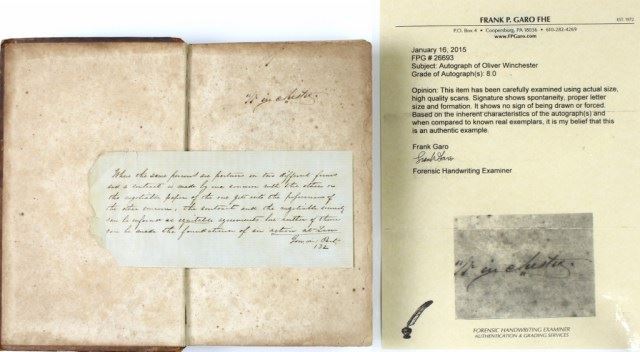 Winchester.
When the same person are partners in two different firms
and a contract is made by one concern with the other or
the negotiable paper of the one gets into the possession of
the other concern, the contract and the negotiable security
can be enforced as equitable agreements but neither of them
can be made the foundation of an action at Law
132
FRANK P. GARO FHE
EST. 1972
P.O. Box 4 • Coopersburg, PA 18036 • 610-282-4269
www.FPGaro.com
January 16, 2015
FPG # 26693
Subject: Autograph of Oliver Winchester
Grade of Autograph(s): 8.0
Opinion: This item has been carefully examined using actual size,
high quality scans. Signature shows spontaneity, proper letter
size and formation. It shows no sign of being drawn or forced.
Based on the inherent characteristics of the autograph(s) and
when compared to known real exemplars, it is my belief that this
is an authentic example.
Frank Garo
Frank Garo
Forensic Handwriting Examiner
Winchester.
FORENSIC HANDWRITING EXAMINER
AUTHENTICATION & GRADING SERVICES